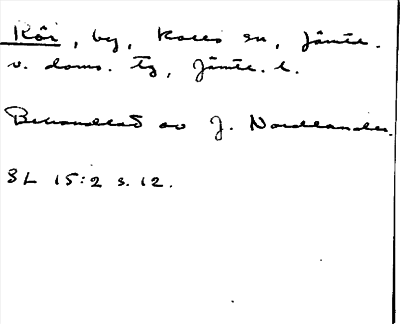 Rôi, by, Kalls sn, Jämtl.
v. doms. tg, Jämtl. l.
Behandlat av J. Nordlander.
SL 15:2 s. 12.